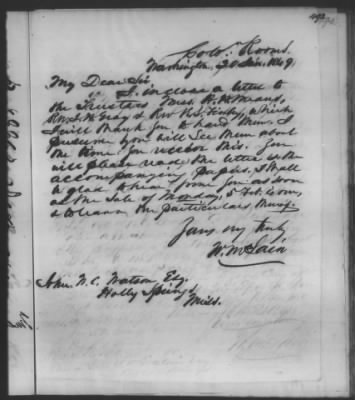 Colo. Rooms.
Washington, 20 Jan. 1849,
My Dear Sir,
I inclose a letter to
the Trustees Mess.
Rev. & Rev. which
I will thank you to hand them. I
presume you will see them about
the time you receive this. You
will please read the letter & the
accompanying papers. I shall
be glad to hear from you as soon
as the Sale of Monday, 5 Feb. is over,
& to learn the particulars thereof.
Yours very truly
W. McLain
John W. C. Watson Esq.
Holly Springs
Miss.